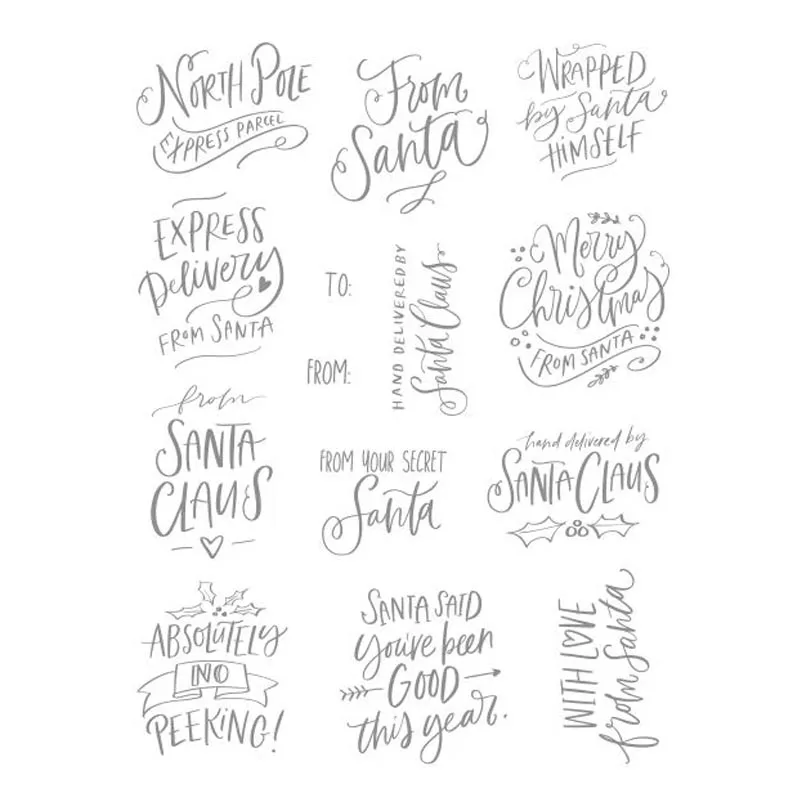 NORTH POLE
EXPRESS PARCEL
From
Santa
WRAPPED
by Santa
HIMSELF
EXPRESS
Delivery
FROM SANTA
TO:
FROM:
HAND DELIVERED BY
Santa Claus
Merry
Christmas
FROM SANTA
from
SANTA
CLAUS
FROM YOUR SECRET
Santa
hand delivered by
SANTA CLAUS
ABSOLUTELY
NO
PEEKING!
SANTA SAID
you've been
GOOD
this year.
WITH LOVE
from Santa